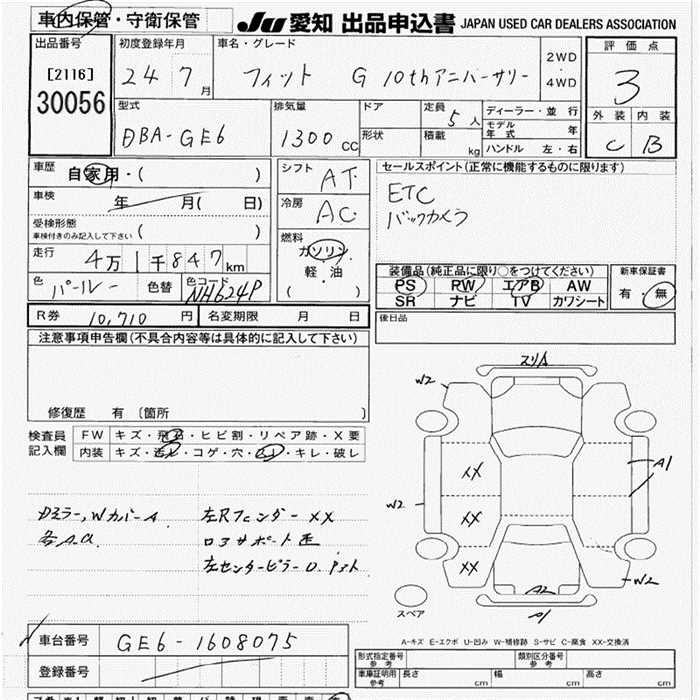 車内保管・守衛保管
JU 愛知 出品申込書 JAPAN USED CAR DEALERS ASSOCIATION
出品番号
[2116]
30056
初度登録年月
24 7月
車名・グレード
フィット G 10thアニバーサリー
2WD
・
4WD
評価点
3
外装 内装
C B
型式
DBA-GE6
排気量
1300cc
ドア
形状
定員
5人
積載
kg
ディーラー・並行
モデル年式 年
ハンドル 左・右
車歴
自家用・( )
車検
年 月( 日)
受検形態
車検付きのみ記入して下さい ( )
走行
4万1千847km
色
パールー
色替
色コード
NH624P
シフト
AT
冷房
AC
燃料
ガソリン
・
軽・油
( )
セールスポイント(正常に機能するものに限ります)
ETC
バックカメラ
装備品(純正品に限り〇をつけてください)
PS PW エアB AW
SR ナビ TV カワシート
新車保証書
有・無
後日品
R券 10,710円
名変期限 月 日
注意事項申告欄(不具合内容等は具体的に記入して下さい)
修復歴 有〔箇所 〕
検査員
記入欄
FW キズ・飛石・ヒビ割・リペア跡・X要
内装 キズ・汚レ・コゲ・穴・スレ・キレ・破レ
Dミラー,WカバーA
各A.U.
左Rフェンダー XX
ロアサポート歪
左センターピラーU.
W2
W2
W2
XX
XX
XX
A1
A2
スペア
A-キズ E-エクボ U-凹み W-補修跡 S-サビ C-腐食 XX-交換済
車台番号
GE6-1608075
登録番号
形式指定番号
参考
類別区分番号
参考
車庫証明用
参考
長さ cm 幅 cm 高さ cm